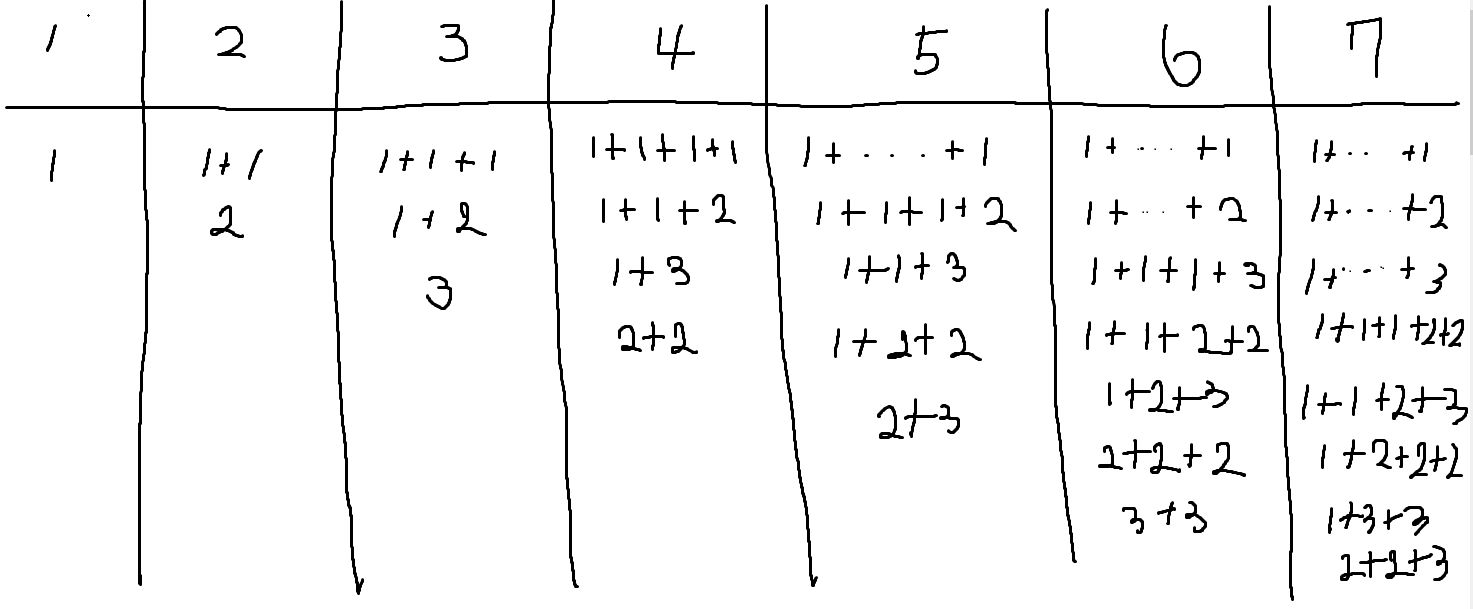 1 2 3 4 5 6 7
1 1+1 1+1+1 1+1+1+1 1+...+1 1+...+1 1+..+1
2 1+2 1+1+2 1+1+1+2 1+..+2 1+...+2
3 1+3 1+1+3 1+1+1+3 1+...+3
2+2 1+2+2 1+1+2+2 1+1+1+2+2
2+3 1+2+3 1+1+2+3
2+2+2 1+2+2+2
3+3 1+3+3
2+2+3